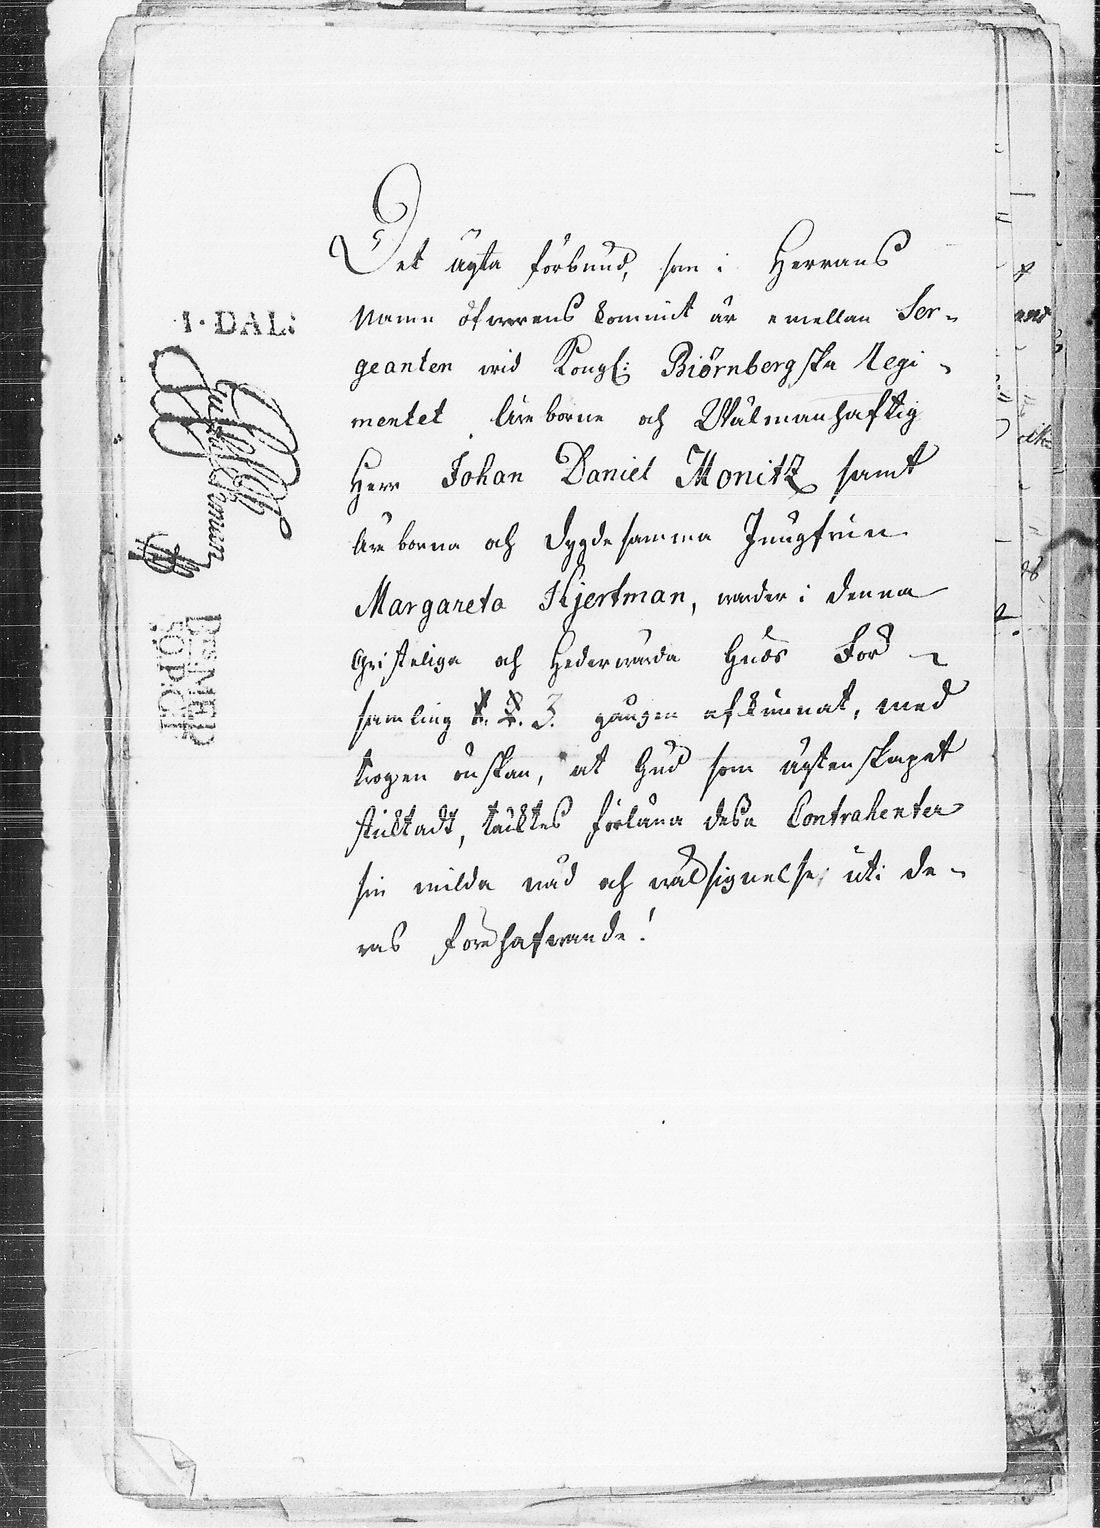 Det ägta förbund, som i Herrans
Namn öfwerens kommit är emellan Ser-
geanten wid Kongl: Biörnbergska Regi-
mentet Äreborne och Wälmanhaftig
Herr Johan Daniel Monitz samt
Äreborna och dygdesamma Jungfrun
Margareta Hjertman, warder i denna
Christeliga och Hederwärda Guds För-
samling 1. 2. 3. gången afkunnat, med
trogen önskan, at Gud som ägtenskapet
stichtadt, täcktes förläna desa Contrahenter
sin milda nåd och wälsignelse, uti de-
ras förehafwande!
1·DAL: